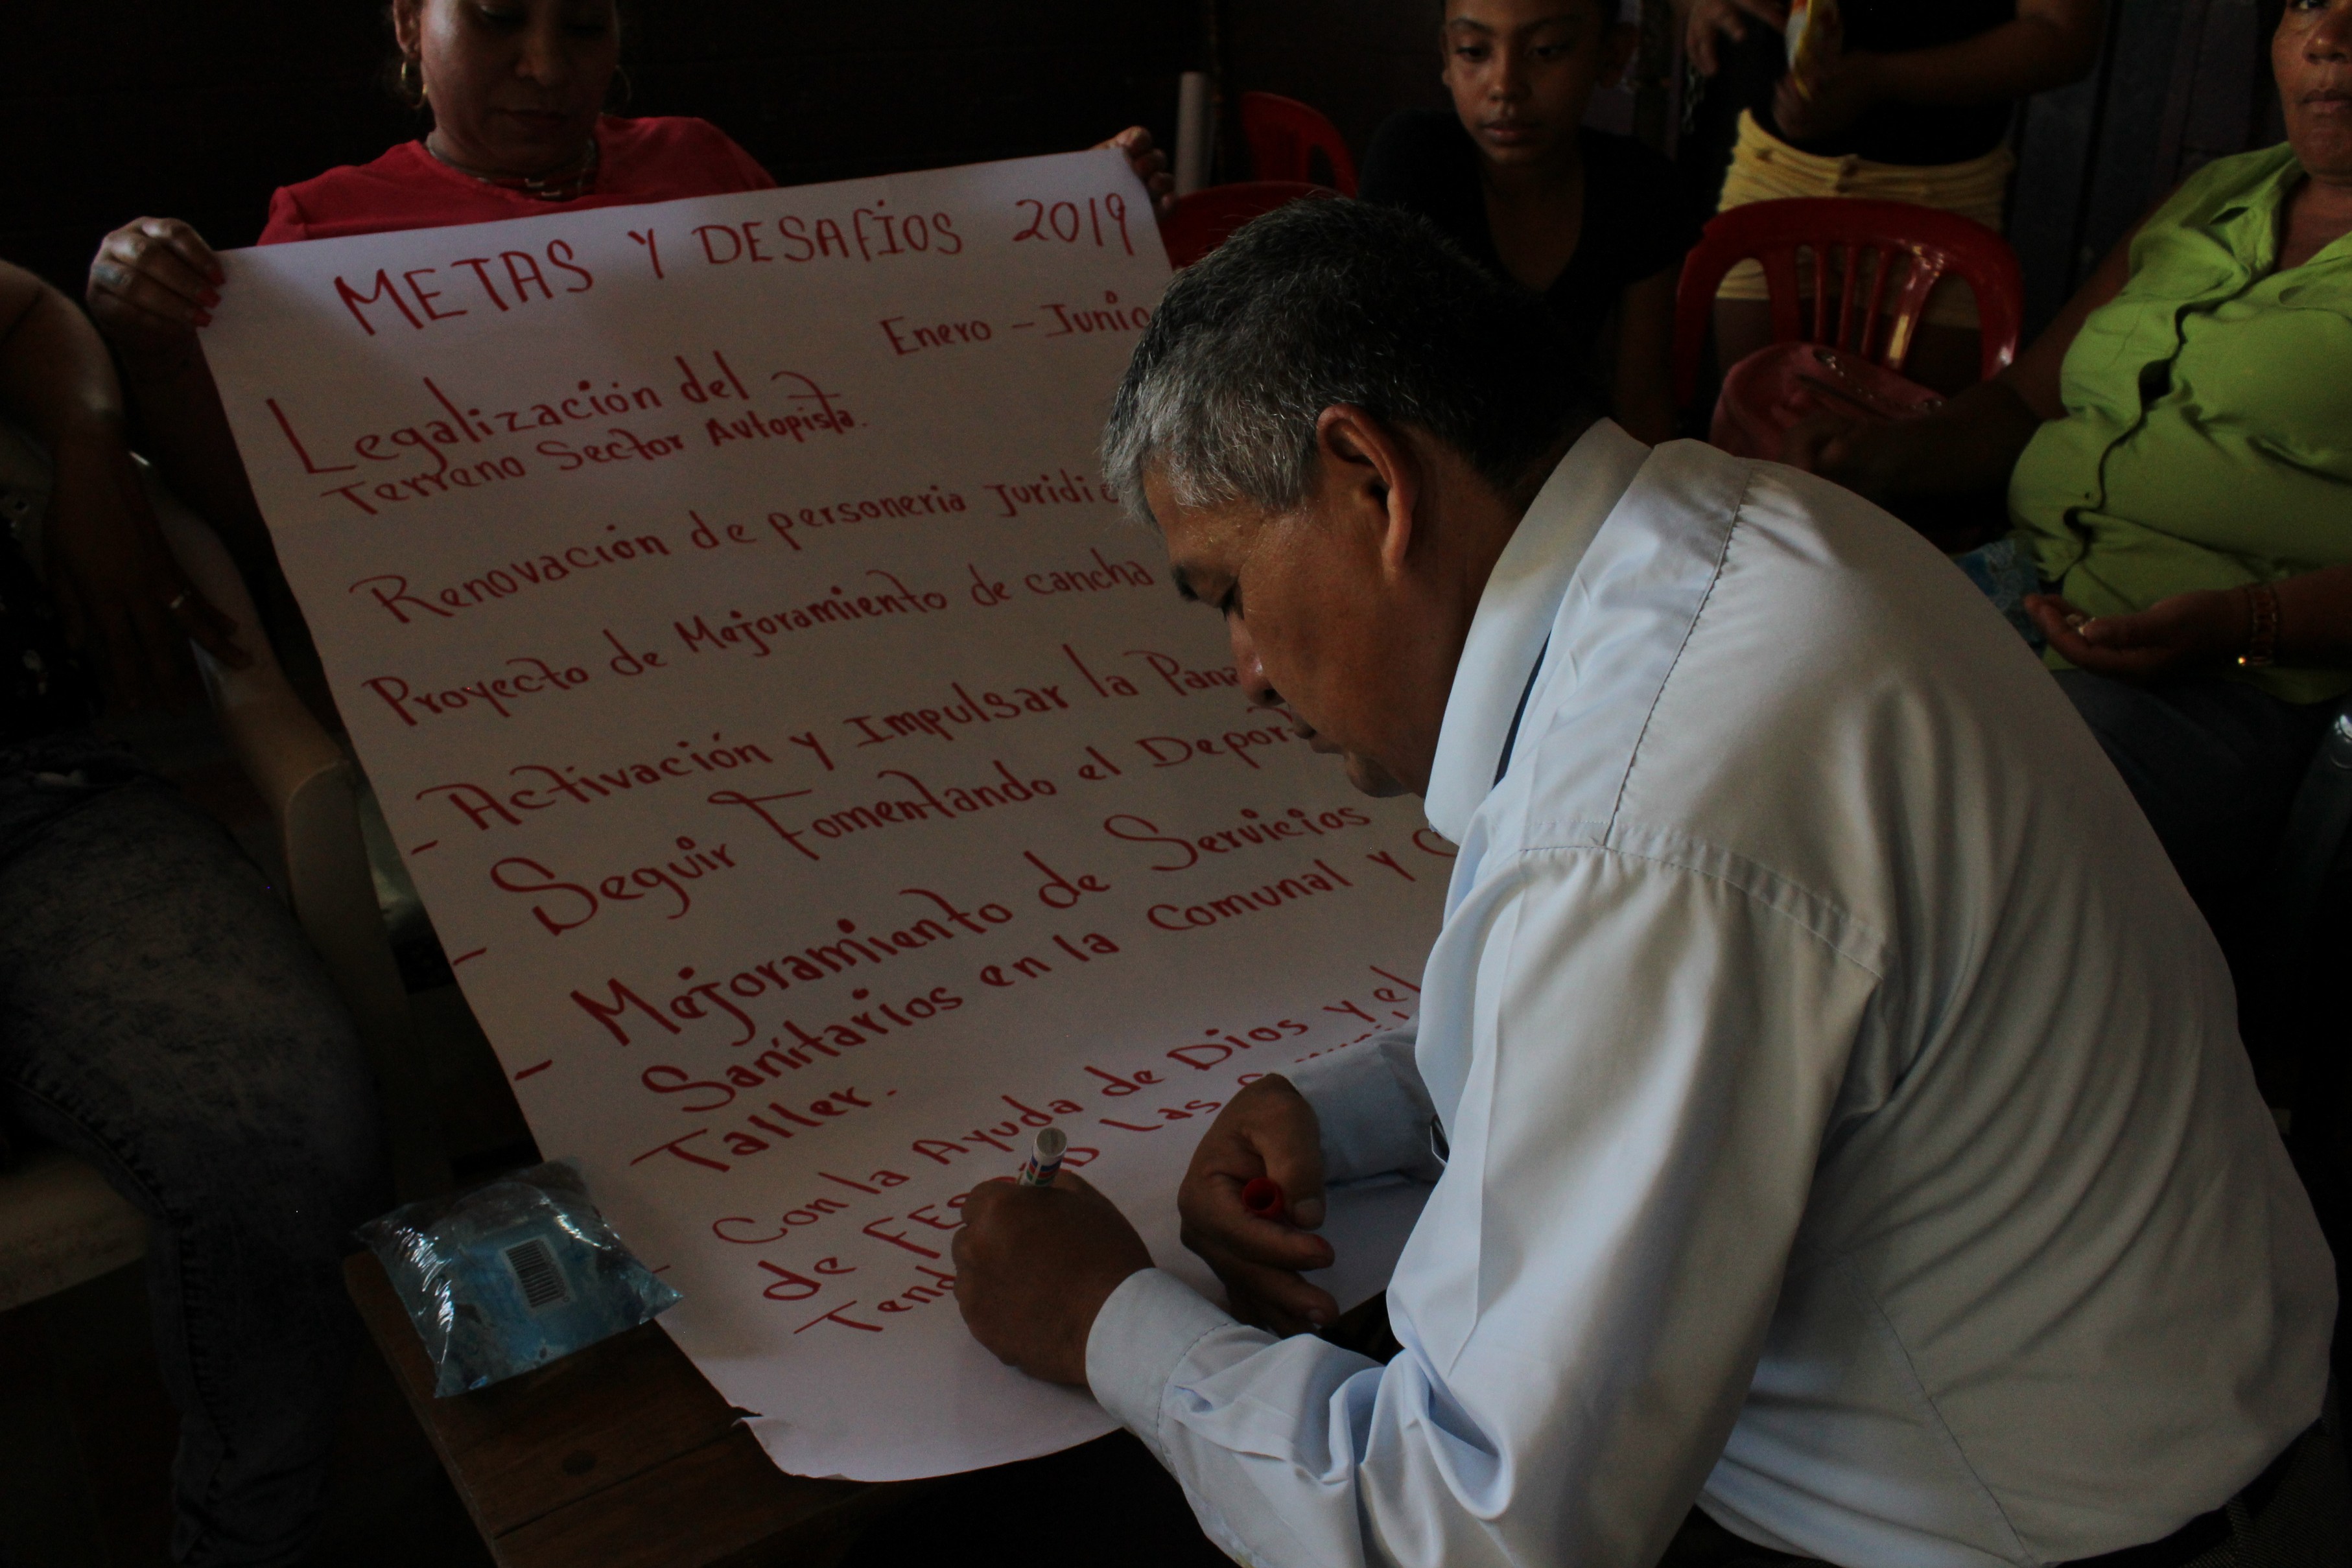 METAS Y DESAFÍOS 2019
Enero - Junio
Legalización del
Terreno Sector Autopista.
Renovación de personeria Juridi
Proyecto de Mejoramiento de cancha
- Activación y Impulsar la Pana
- Seguir Fomentando el Depor
- Mejoramiento de Servicios
Sanitarios en la Comunal y
Taller.
- Con la Ayuda de Dios y el
de Las
Tend